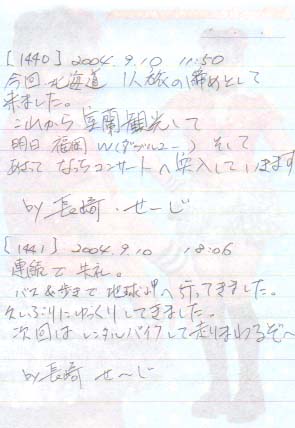 [1440] 2004.9.10 11:50
今回、北海道 1人旅の締めとして
来ました。
これから室蘭観光して
明日 福岡 W(ダブルユー) そして
あさって なっちコンサートへ突入していきます
by 長崎・せーじ
[1441] 2004.9.10 18:06
連続で失礼。
バス&歩きで地球岬へ行ってきました。
久しぶりにゆっくりしてきました。
次回はレンタルバイクして走りまわるぞ〜
by 長崎 せ〜じ